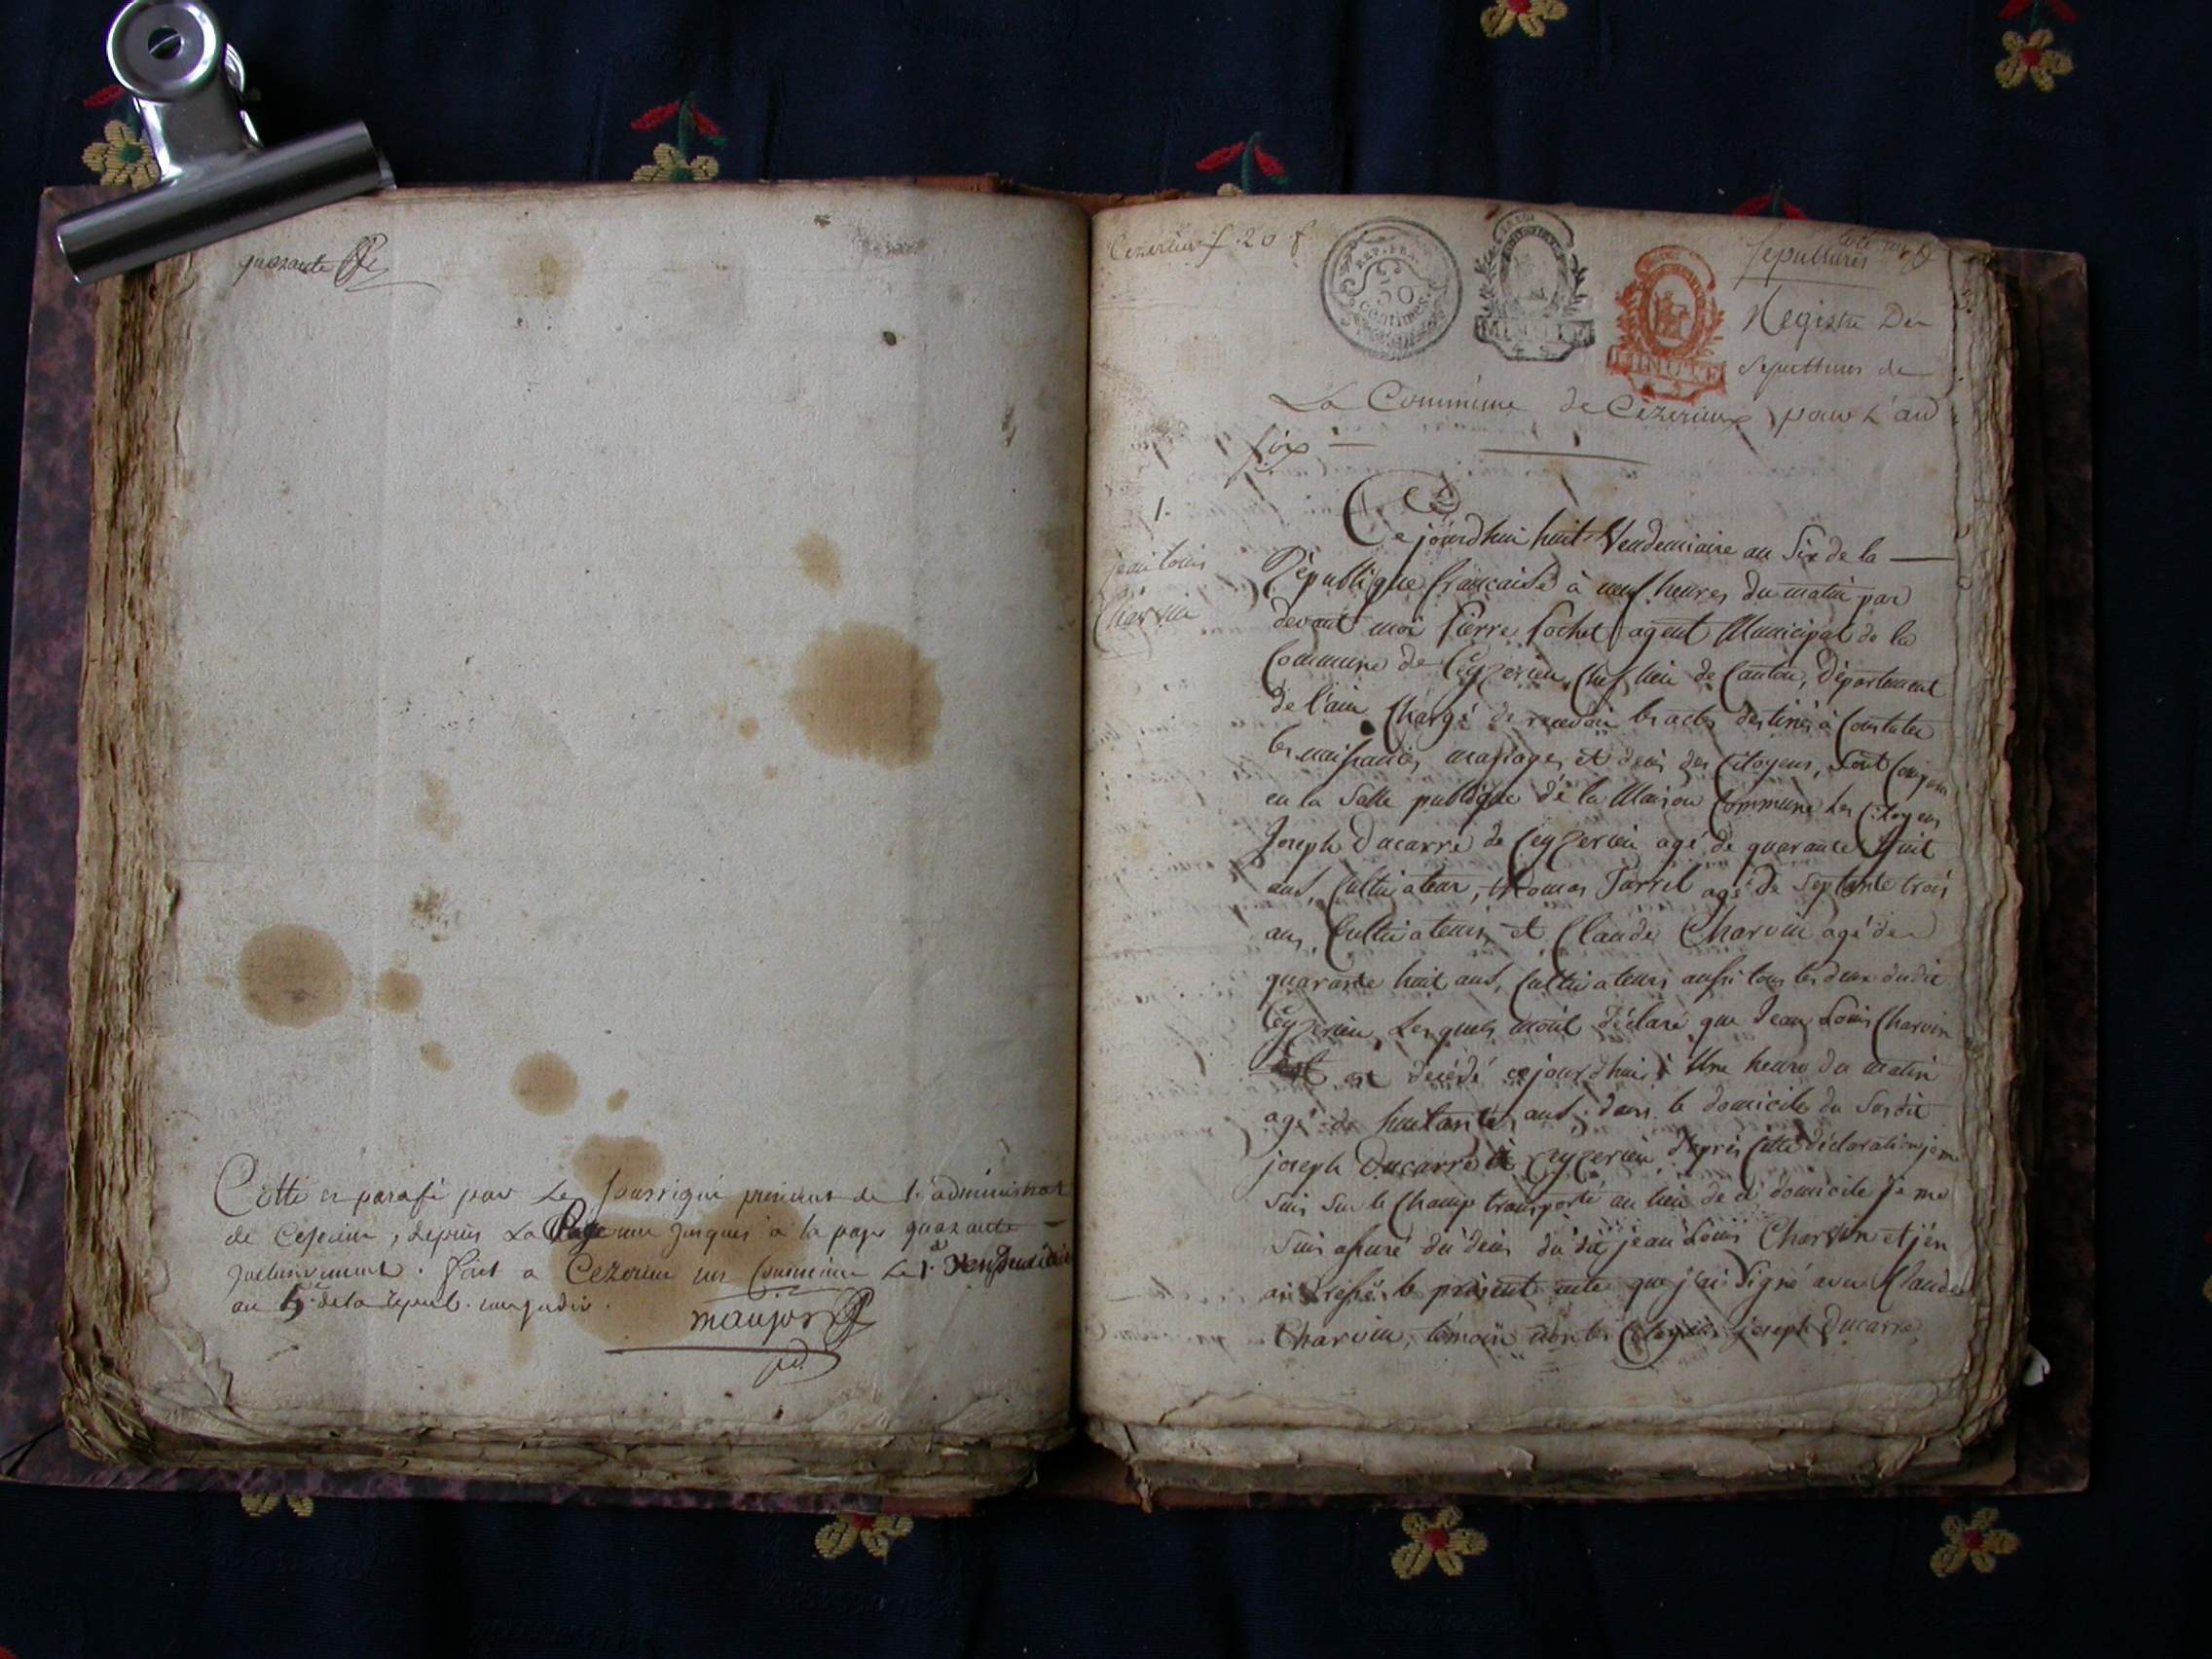 quarante
Cotté et parafé par le soussigné president de l'administrat
de Ceserieu, depuis la page une jusques à la page quarante
inclusivement. fait a Cezerieu en Commune le 1.er Vendemiaire
an 6. de la repub. une indiv.
maujot
Cezerieu f. 20 f.
REP. FRA.
50
centimes
MINUTE
MINUTE
Sepultures
Registre Des
sepultures de
La Commune de Cezerieux pour L'an
six
1.
jean louis
Charvin
Cejourdhui huit Vendemiaire an Six de la
République francaise à neuf heures du matin par
devant moi Pierre Pochet agent Municipal de la
Commune de Ceyzerieu, Chef lieu de Canton, Département
de l'ain Chargé de recevoir les actes destinés à Constater
les naissances mariages et deces des Citoyens, Sont Comparus
en la Salle publique de la Maison Commune Les Citoyens
Joseph Ducarre de Ceyzerieu agé de quarante huit
ans, Cultivateur, thomas Jarril agé de Septante trois
ans, Cultivateurs, et Claude Charvin agé de
quarante huit ans, Cultivateurs aussi tous les deux dudit
Ceyzerieu, Lesquels m'ont déclaré que Jean Louis Charvin
est decédé cejourdhui à Une heure du matin
agé de huitante ans, dans le domicile du Susdit
joseph Ducarre à Ceyzerieu, d'après Cette déclaration je me
suis sur le Champ transporté au lieu de ce domicile je me
suis assuré du décès du dit jean Louis Charvin et j'en
ai dressé le présent acte que j'ai Signé avec Claude
Charvin, témoin non les Citoyens joseph Ducarre,